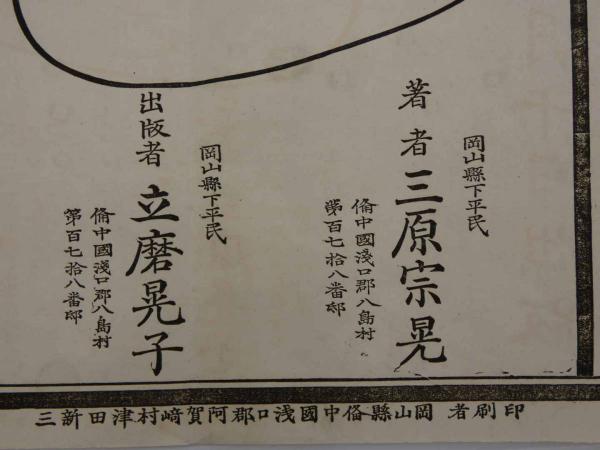 岡山縣下平民
著者 三原宗晃
備中國淺口郡八島村
第百七拾八番邸
岡山縣下平民
出版者 立磨晃子
備中國淺口郡八島村
第百七拾八番邸
印刷者 岡山縣備中國淺口郡阿賀﨑村津田新三